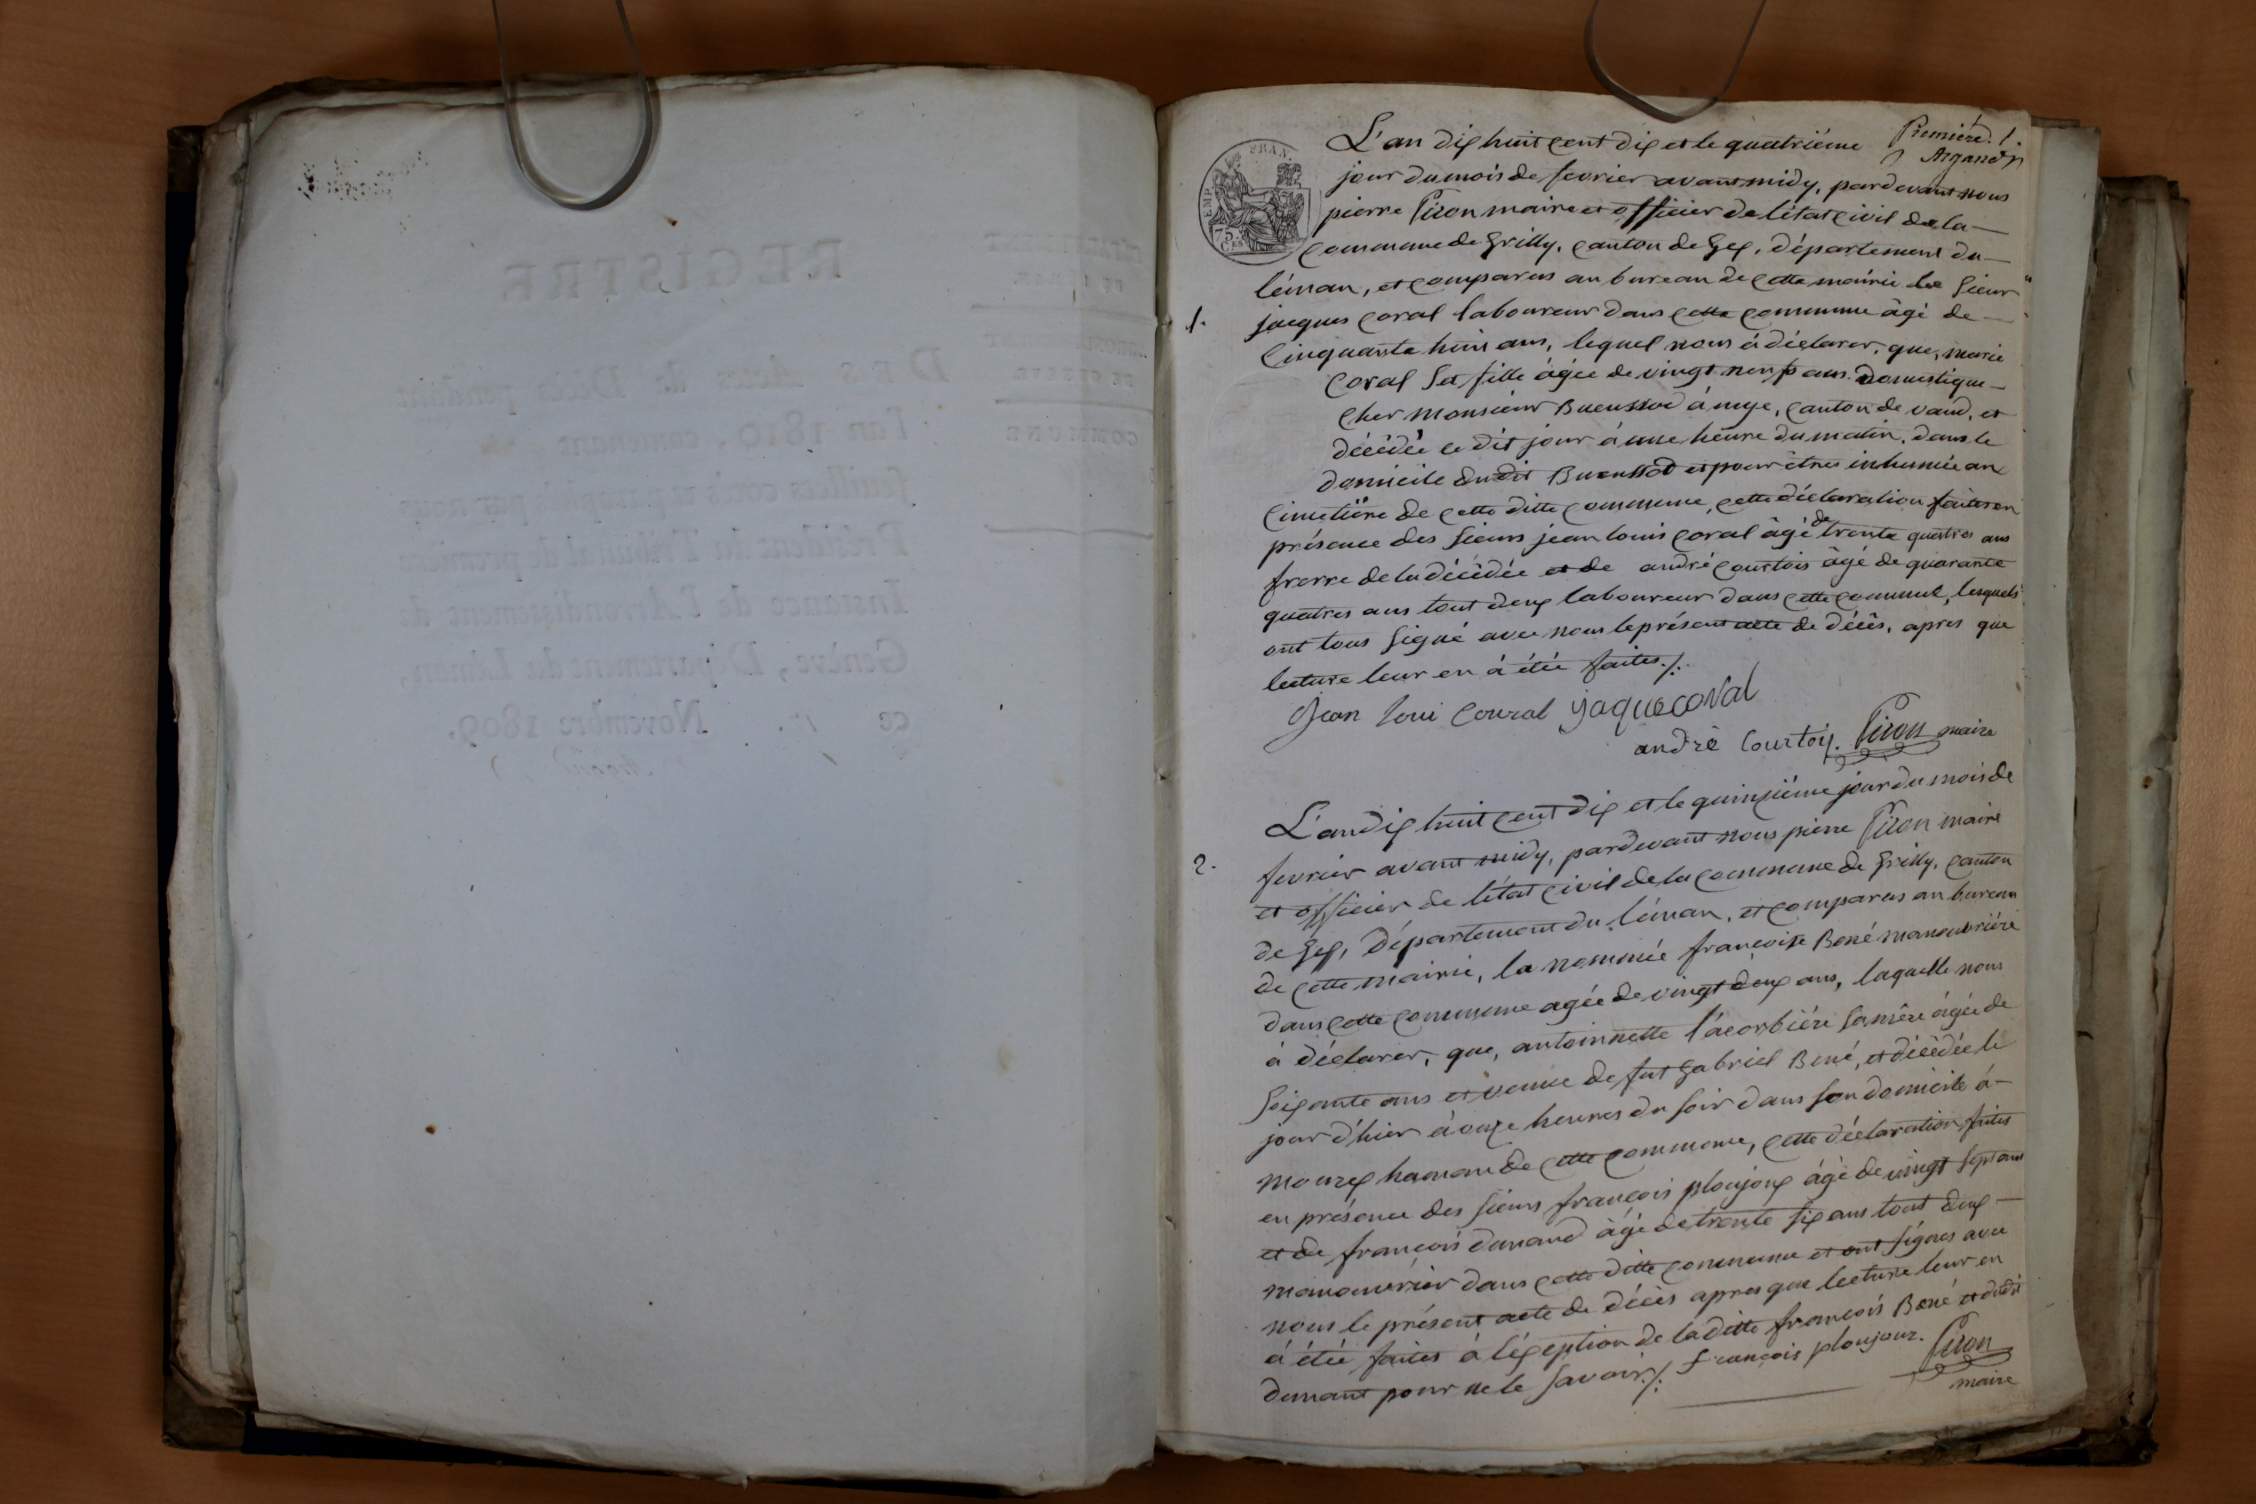 Première. 1.
Argand
L'an dix huit cent dix et le quatriéme
jour du mois de fevrier avant midy, pardevant nous
pierre Piron maire et officier de l'état civil de la
commune de Grilly, canton de Gex, département du
léman, et comparus au bureau de cette mairie le Sieur
1.
jacques Coral laboureur dans cette commune âgé de
Cinquante huit ans, lequel nous à déclarer, que, marie
Coral sa fille âgée de vingt neuf ans. Domestique
cher Monsieur à canton de vaud, et
décédée ce dit jour à une heure du matin, dans le
domicile dudit et pour êtres inhumée au
Cimetiére de cette ditte commune, cette déclaration faites en
présence des Sieurs jean louis Coral âgé de trente quatres ans
frerre de la décédée et de andré Courtois âgé de quarante
quatres ans tout deux laboureur dans cette commune, lesquels
ont tous Signé avec nous le présent acte de décès, apres que
lecture leur en à étée faites./.
Jean loui Coural jaque coral
andrè Courtois. Piron maire
L'an dix huit cent dix et le quinziéme jour du mois de
2.
fevrier avant midy, pardevant nous pierre Piron maire
et officier de l'état civil de la commune de Grilly, canton
de Gex, département du léman, et comparus au bureau
de cette mairie, la nommée françoise Bené manouvriére
dans cette commune agée de vingt deux ans, laquelle nous
à déclarer, que, antoinnette l'acorbiére Sa mêre âgée de
Soixante ans et veuve de fut Gabriel Bené, et décédée le
jour d'hier à onze heures du soir dans son domicile à
mourex hamau de cette commune, cette déclaration faites
en présence des Sieurs françois ploujoux âgé de vingt sept ans
et de françois dunand âgé de trente six ans tout deux
manouvrier dans cette ditte commune et ont signés avec
nous le présent acte de décès apres que lecture leur en
à étée faites à l'éxeption de laditte françois Bené et dudit
dunant pour ne le savoir./. françois ploujoux. Piron
maire
REGISTRE
COMMUNE
DES Actes de Décès pendant
l'an 1810, contenant
feuillets
Président du Tribunal de première
Instance de l'Arrondissement de
Genève, Département du Léman,
ce Novembre 1809.
EMP. FRAN.
75
CES